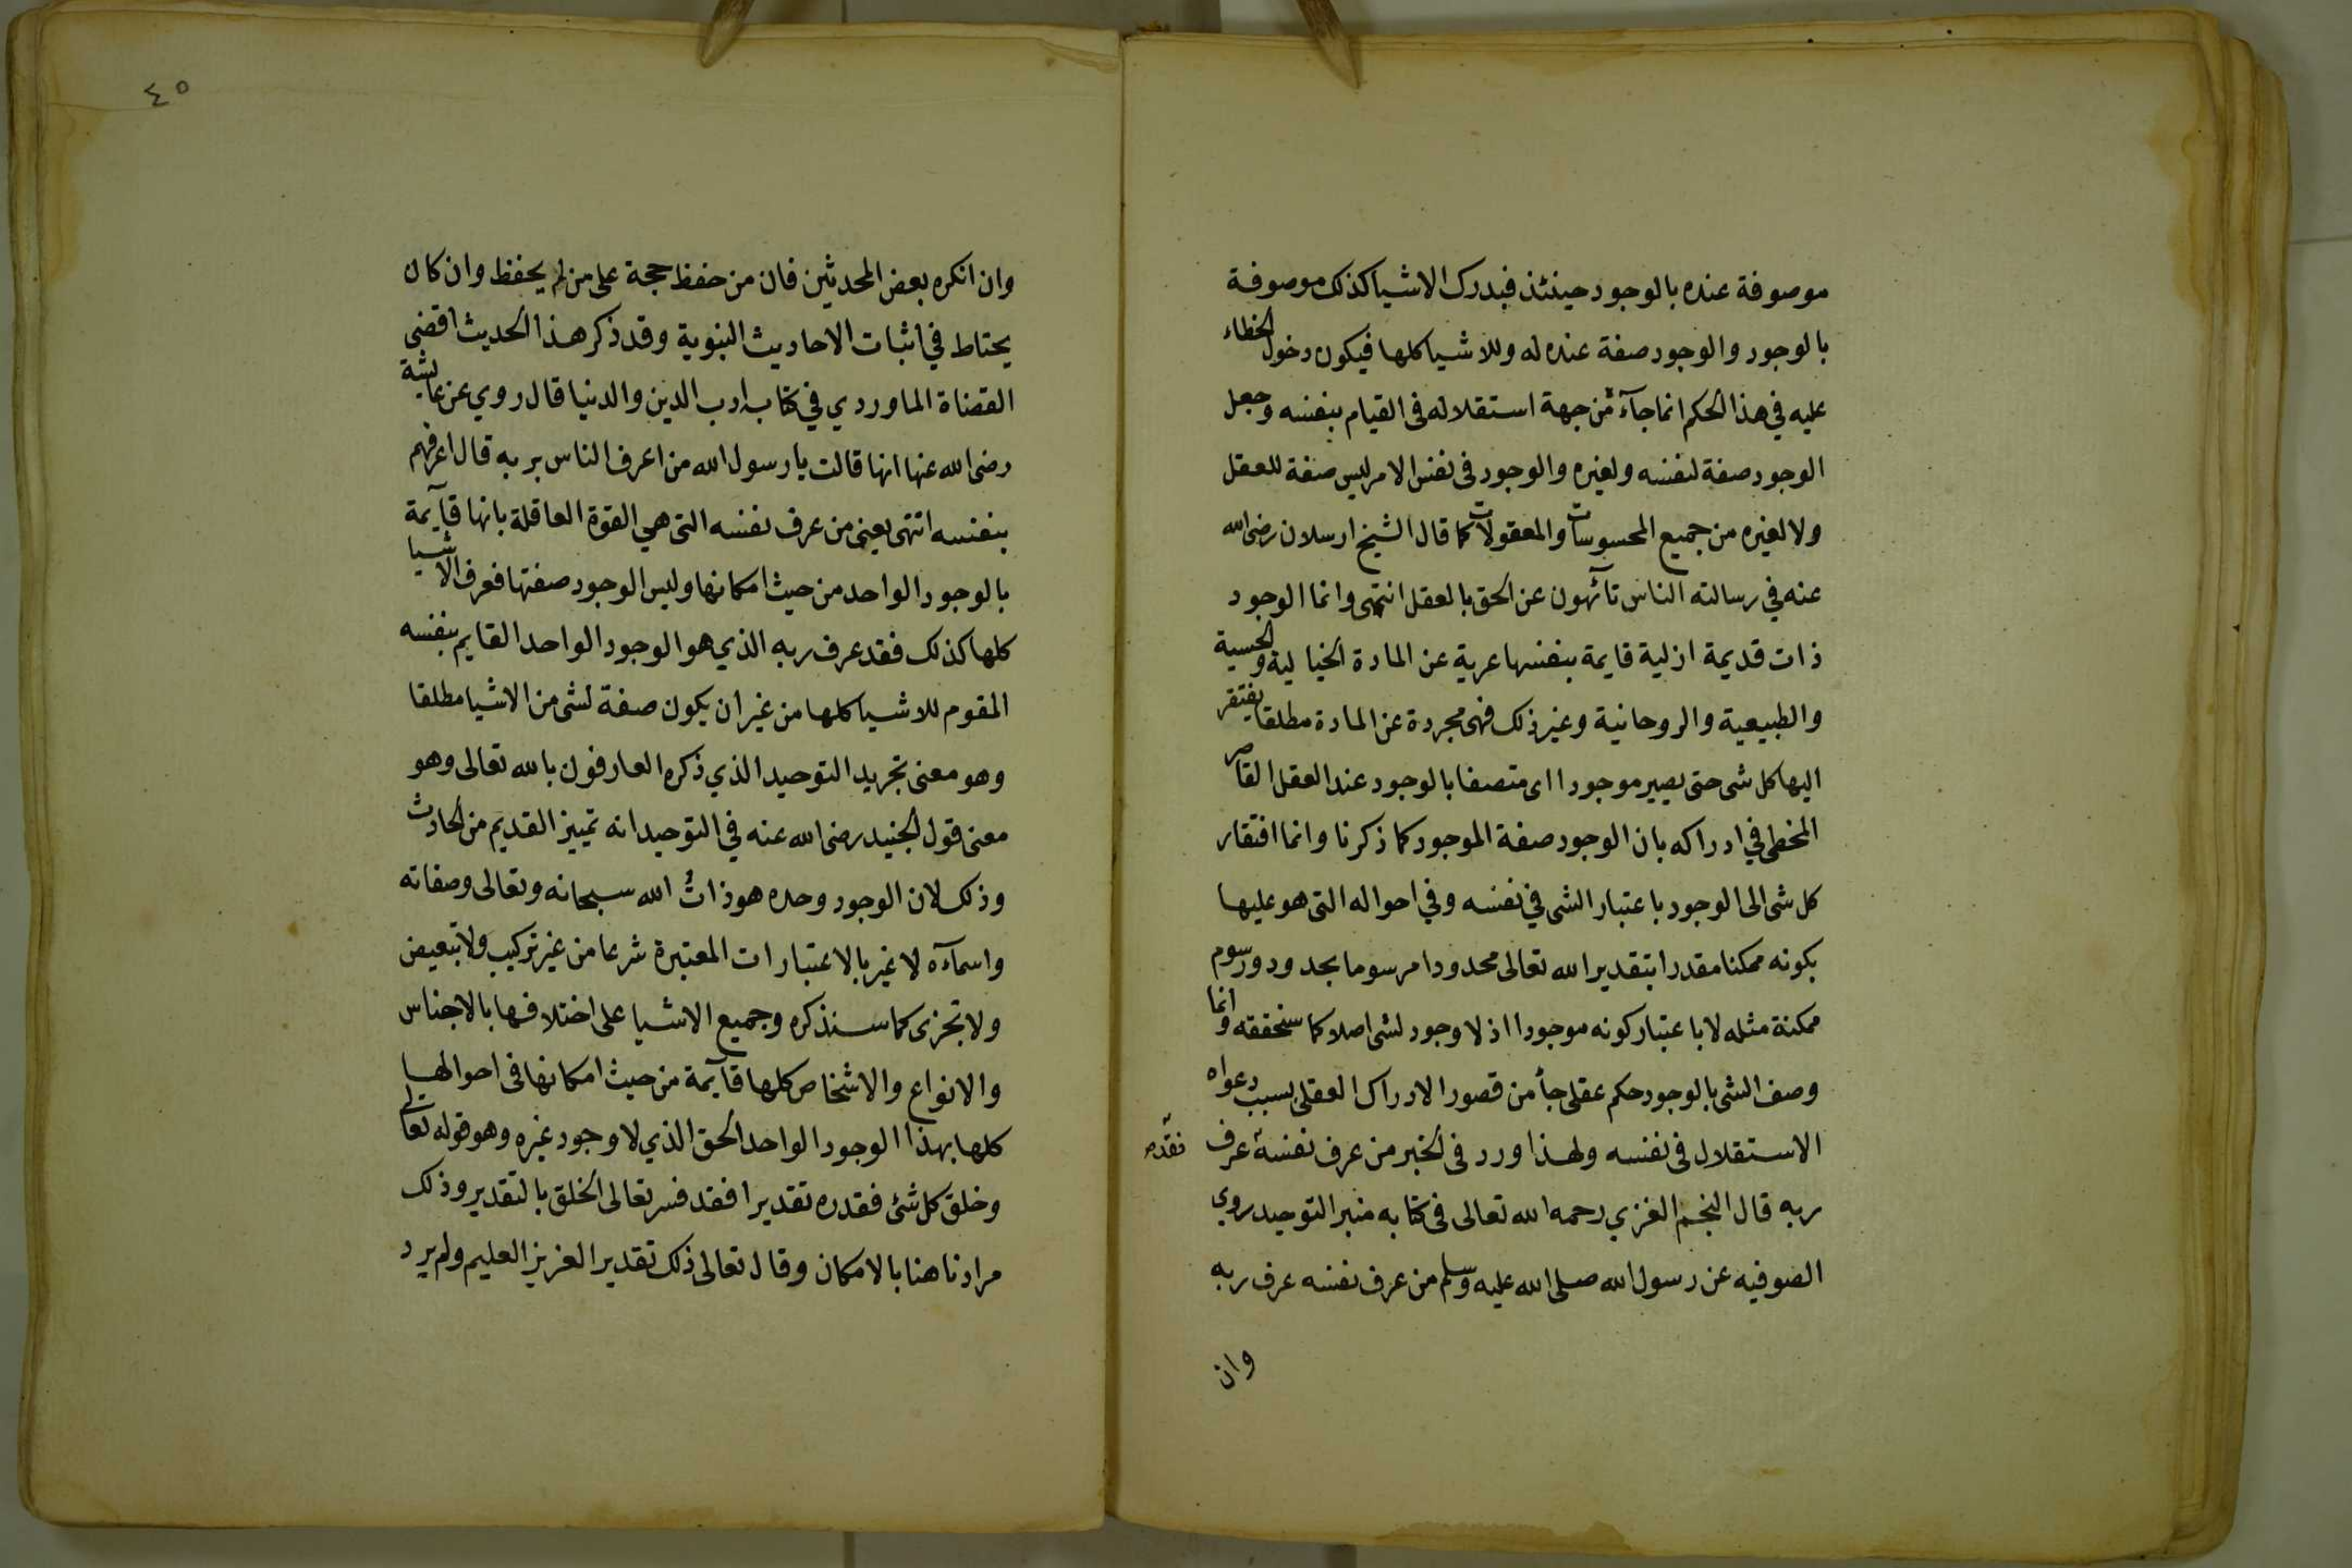 موصوفة عنده بالوجود حينئذ فيدرك الاشيا كذلك موصوفة
بالوجود والوجود صفة عنده له وللاشيا كلها فيكون دخول الخطاء
عليه في هذا الحكم انما جآء من جهة استقلاله فى القيام بنفسه وجعل
الوجود صفة لنفسه ولغيره والوجود فى نفس الامر ليس صفة للعقل
ولا لغيره من جميع المحسوسات والمعقولات كما قال الشيخ ارسلان رضى الله
عنه في رسالته الناس تآئهون عن الحق بالعقل انتهى وانما الوجود
ذات قديمة ازلية قايمة بنفسها عرية عن المادة الخيالية والحسية
والطبيعية والروحانية وغير ذلك فهى مجردة عن المادة مطلقا يفتقر
اليها كل شى حتى يصير موجودا اى متصفا بالوجود عند العقل القاصر
المخطى في ادراكه بان الوجود صفة الموجود كما ذكرنا وانما افتقار
كل شى الى الوجود باعتبار الشى في نفسه وفي احواله التى هو عليها
بكونه ممكنا مقدرا بتقدير الله تعالى محدودا مرسوما بحدود ورسوم
ممكنة مثله لا باعتبار كونه موجودا اذ لا وجود لشى اصلا كما سنحققه وانما
وصف الشى بالوجود حكم عقلى جأ من قصور الادراك العقلى بسبب دعواه
الاستقلال فى نفسه ولهذا ورد فى الخبر من عرف نفسه عرف
فقد
ربه قال النجم الغزي رحمه الله تعالى فى كتابه منبر التوحيد روي
الصوفيه عن رسول الله صلى الله عليه وسلم من عرف نفسه عرف ربه
وان
٤٥
وان انكره بعض المحدثين فان من حفظ حجة على من لم يحفظ وان كان
يحتاط في اثبات الاحاديث النبوية وقد ذكر هذا الحديث اقضى
القضاة الماوردي في كتاب ادب الدين والدنيا قال روي عن عايشة
رضى الله عنها انها قالت يا رسول الله من اعرف الناس بربه قال اعرفهم
بنفسه انتهى يعنى من عرف نفسه التى هي القوة العاقلة بانها قآيمة
بالوجود الواحد من حيث امكانها وليس الوجود صفتها فعرف الاشيا
كلها كذلك فقد عرف ربه الذي هو الوجود الواحد القايم بنفسه
المقوم للاشيا كلها من غير ان يكون صفة لشى من الاشيا مطلقا
وهو معنى تجريد التوحيد الذي ذكره العارفون بالله تعالى وهو
معنى قول الجنيد رضى الله عنه في التوحيد انه تمييز القديم من الحادث
وذلك لان الوجود وحده هو ذاتُ الله سبحانه وتعالى وصفاته
واسمآءه لا غير بالاعتبارات المعتبرة شرعا من غير تركيب ولا تبعيض
ولا تجزى كما سنذكره وجميع الاشيا على اختلافها بالاجناس
والانواع والاشخاص كلها قآيمة من حيث امكانها فى احوالها
كلها بهذا الوجود الواحد الحق الذي لا وجود غيره وهو قوله تعالى
وخلق كل شئ فقدره تقديرا فقد فسر تعالى الخلق بالتقدير وذلك
مرادنا هنا بالامكان وقال تعالى ذلك تقدير العزيز العليم ولم يرد